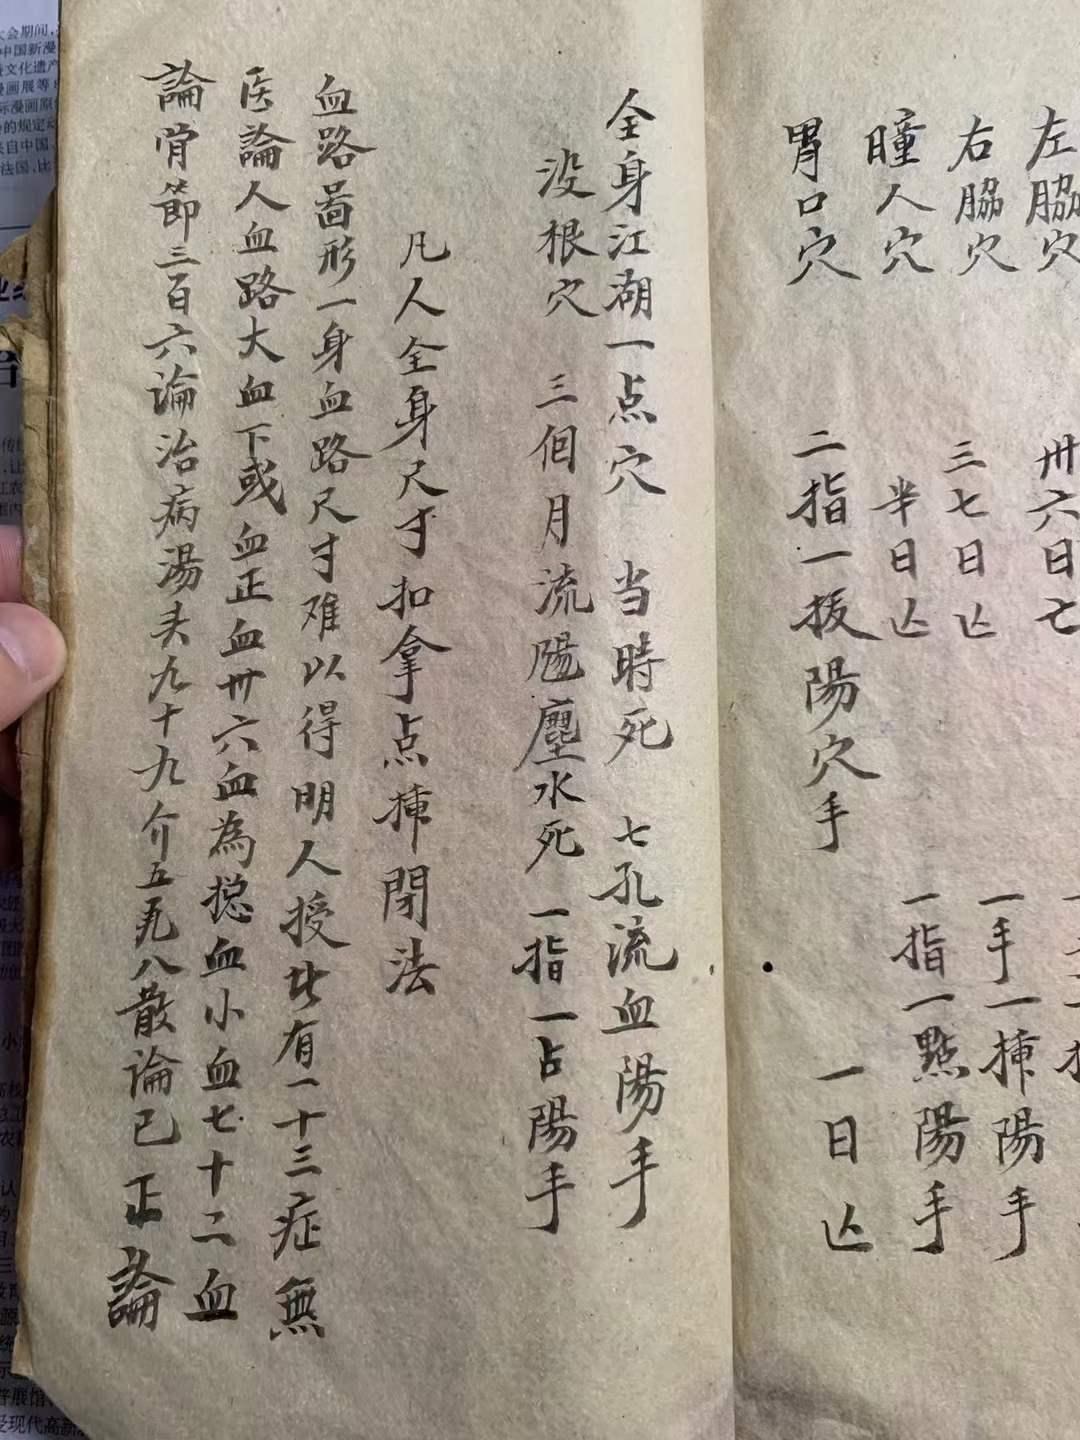 左脇穴 卅六日亡
右脇穴 三七日亡 一手一揷陽手
瞳人穴 半日亡 一指一點陽手
胃口穴 二指一拔陽穴手 一日亡
全身江湖一点穴 当時死 七孔流血陽手
没根穴 三個月流 塵水死 一指一占陽手
凡人全身尺寸扣拿点揷閉法
血路啚形一身血路尺寸难以得明人授此有一十三症無
医論人血路大血下或血正血卅六血為捴血小血七十二血
論骨節三百六論治病湯头九十九介五 八散論已正論